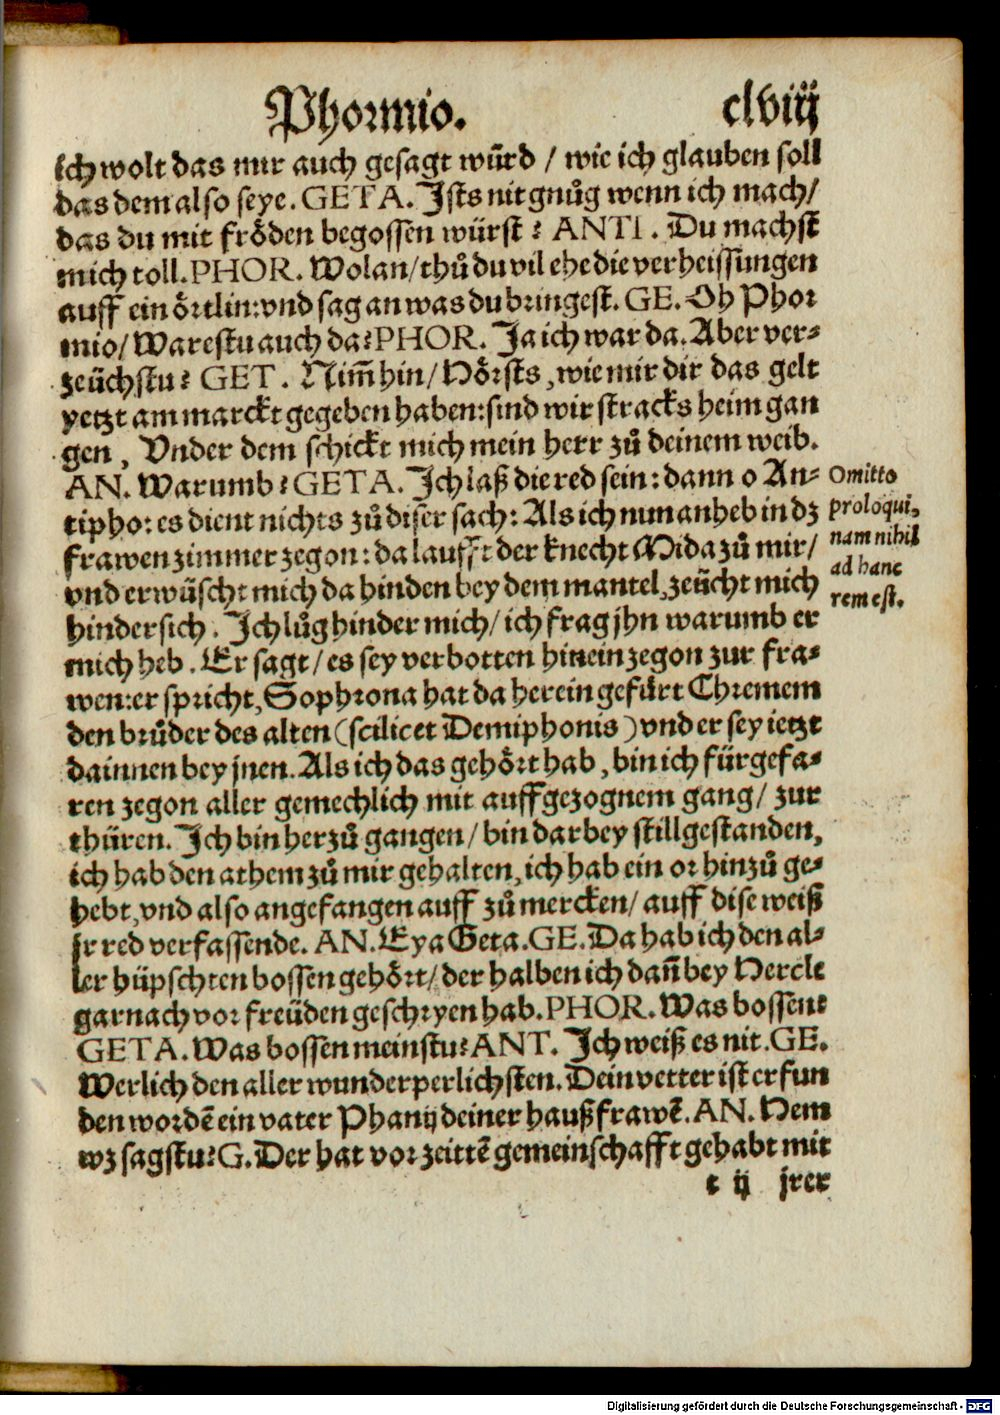 Phormio. clviij
ich wolt das mir auch gesagt wůrd / wie ich glauben soll
das dem also seye. GETA. Ists nit gnůg wenn ich mach /
das du mit frȍden begossen würst? ANTI. Du machst
mich toll. PHOR. Wolan / thů du vil ehe die verheissungen
auff ein örtlin: vnd sag an was du bringest. GE. Oh Phor
mio / Warestu auch da? PHOR. Ja ich war da. Aber ver-
zeüchstu? GET. Nim̃ hin / Hörsts, wie mir dir das gelt
yetzt am marckt gegeben haben: sind wir stracks heim gan
gen, Vnder dem schickt mich mein herr zů deinem weib.
AN. Warumb? GETA. Ich laß die red sein: dann o An-
tipho: es dient nichts zů diser sach: Als ich nun anheb in dz
frawen zimmer zegon: da laufft der knecht Mida zů mir /
vnd erwüscht mich da hinden bey dem mantel, zeücht mich
hindersich. Ich lůg hinder mich / ich frag jhn warumb er
mich heb. Er sagt / es sey verbotten hinein zegon zur fra-
wen: er spricht, Sophrona hat da herein gefürt Chremem
den brůder des alten (scilicet Demiphonis) vnd er sey ietzt
dainnen bey jnen. Als ich das gehört hab, bin ich fürgefa-
ren zegon aller gemechlich mit auffgezognem gang / zur
thüren. Ich bin herzů gangen / bin darbey still gestanden,
ich hab den athem zů mir gehalten, ich hab ein or hinzů ge-
hebt, vnd also angefangen auff zů mercken / auff dise weiß
jr red verfassende. AN. Eya Geta. GE. Da hab ich den al-
ler hüpschten bossen gehört / der halben ich dañ bey Hercle
gar nach vor freüden geschryen hab. PHOR. Was bossen?
GETA. Was bossen meinstu? ANT. Ich weiß es nit. GE.
Werlich den aller wunderperlichsten. Dein vetter ist erfun
den wordē ein vater Phanij deiner haußfrawē. AN. Hem
wz sagstu? G. Der hat vor zeittē gemeinschafft gehabt mit
t ij jrer
Omitto
proloqui,
nam nihil
ad hanc
rem est.
Digitalisierung gefördert durch die Deutsche Forschungsgemeinschaft - DFG